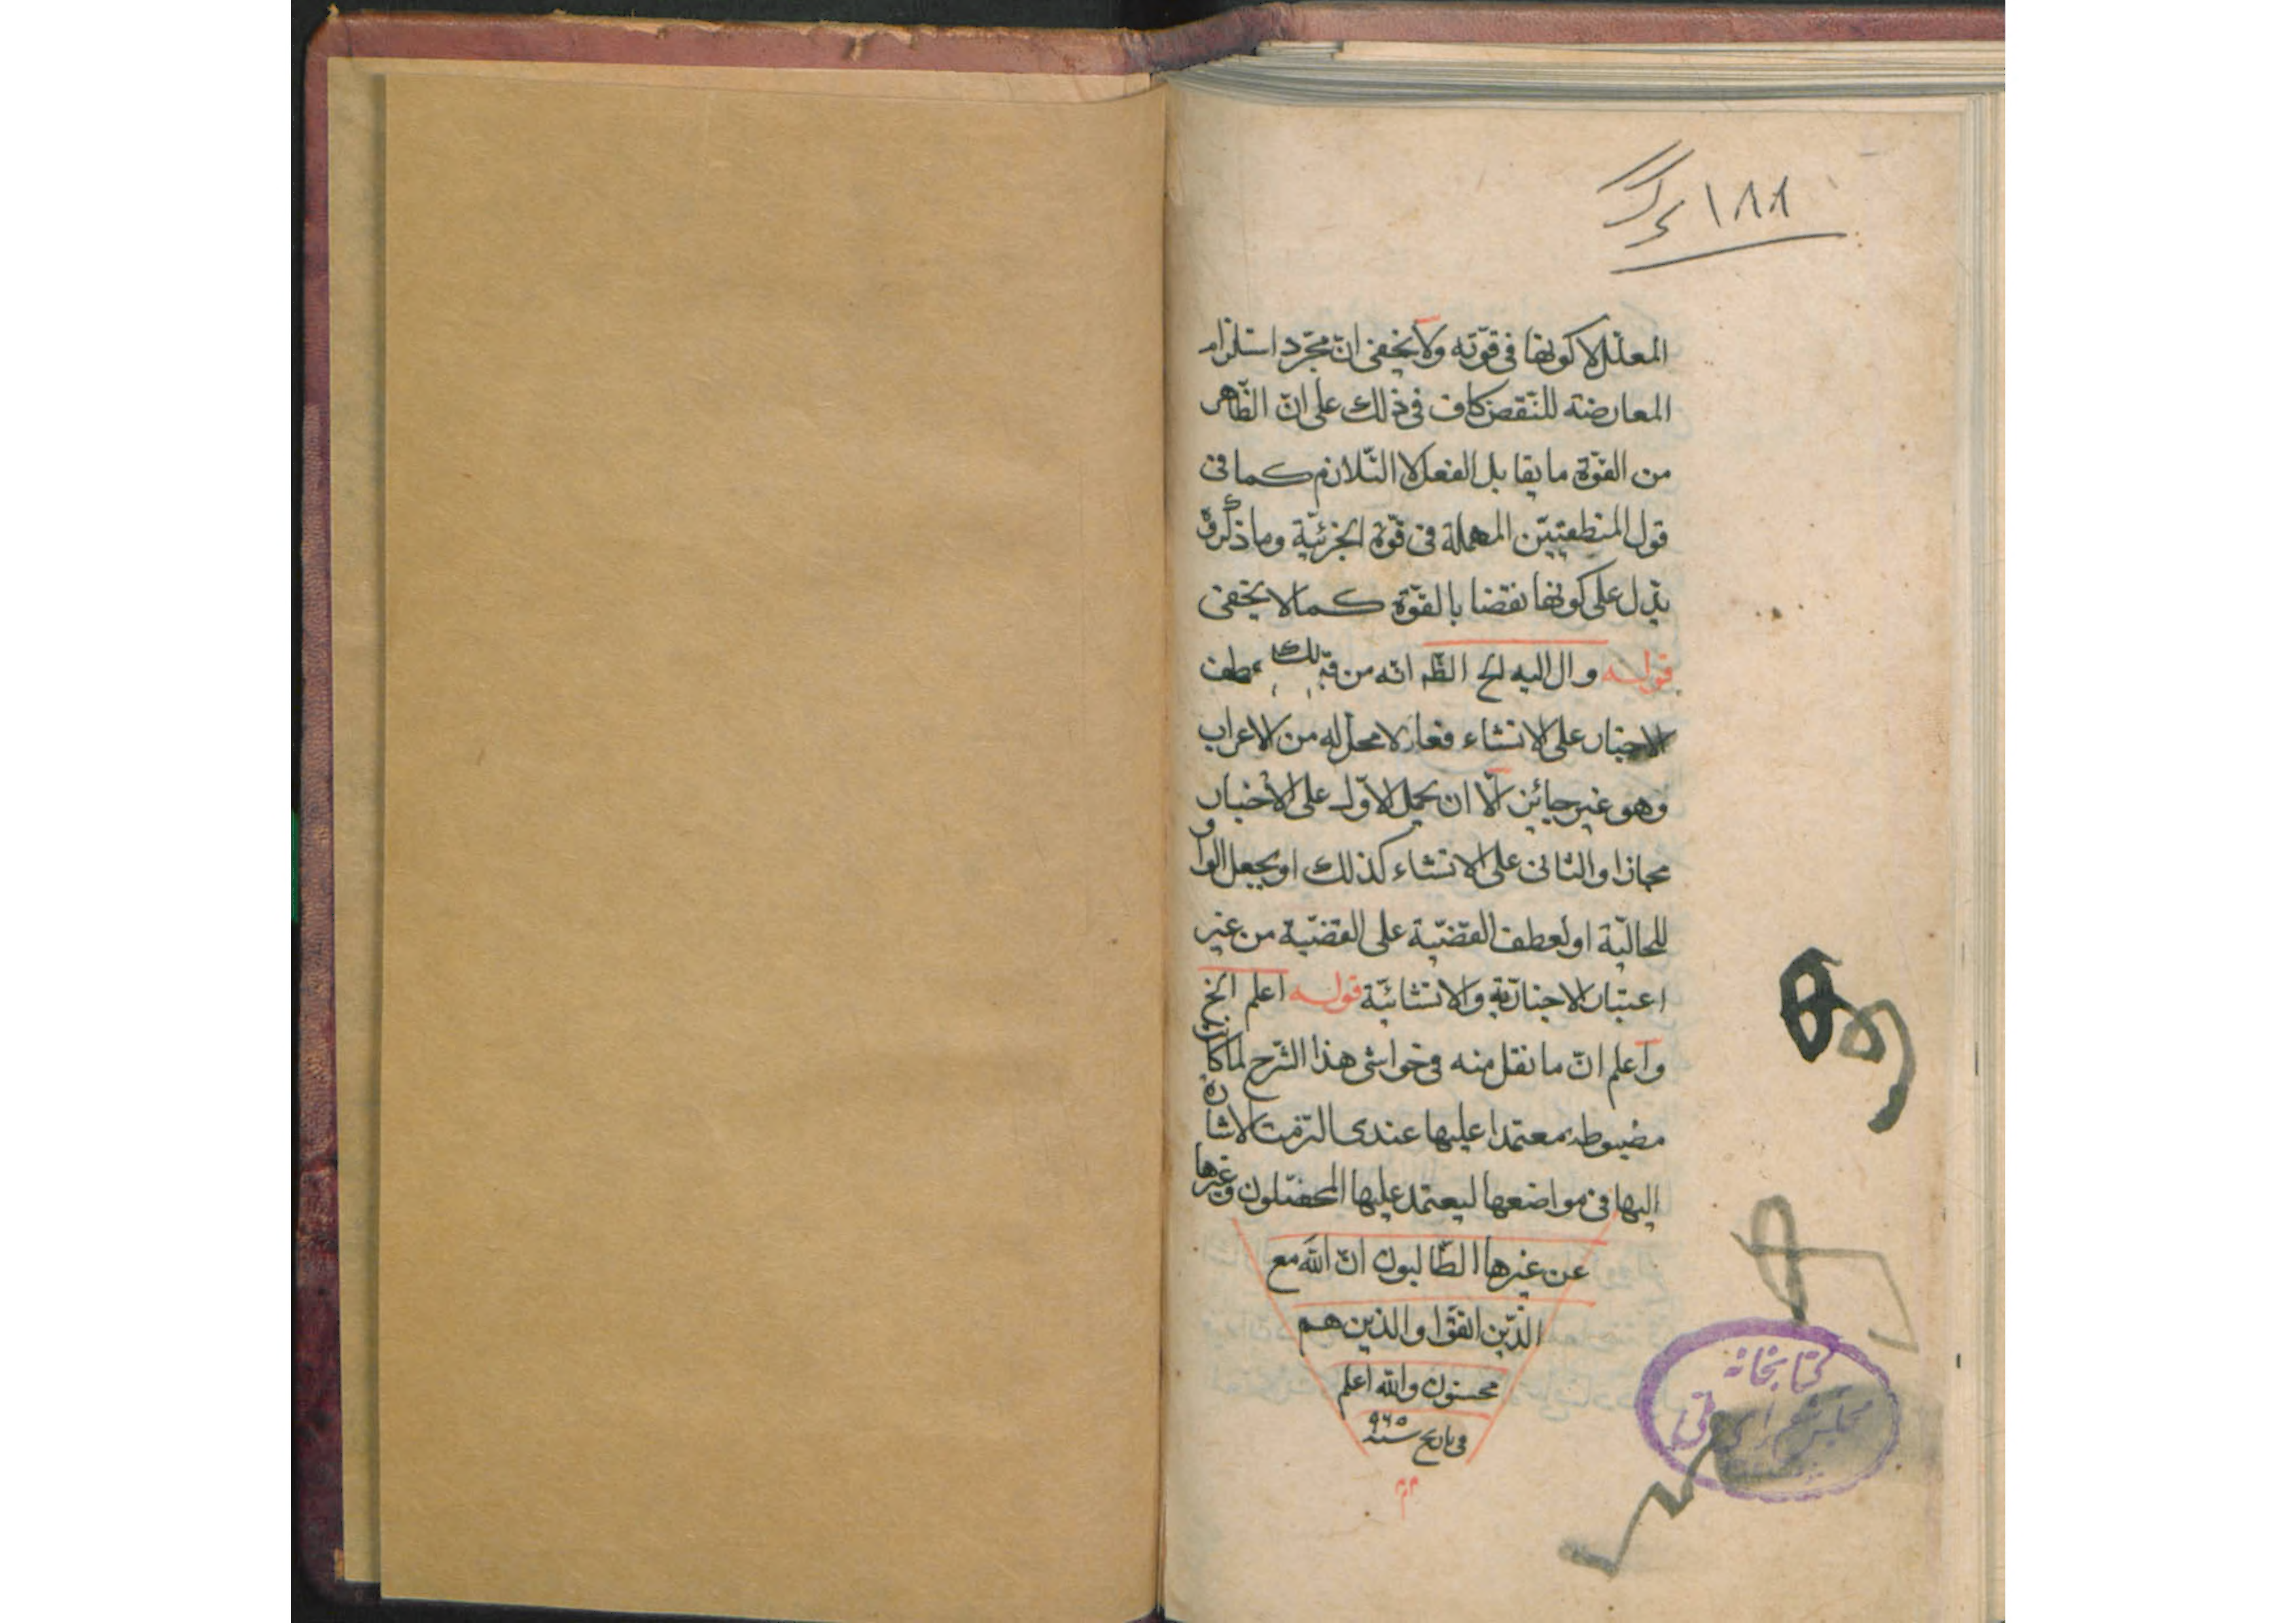 ١٨٨
المعلّل لا كونها فى قوّته ولا يخفى انّ مجرّد استلزام
المعارضة للنّقض كاف فى ذلك على انّ الظّاهر
من القوّة ما يقابل الفعل لا التّلازم كما فى
قول المنطقيّين المهملة فى قوّة الجزئيّة وما ذكره
يدل على كونها نقضا بالقوّة كما لا يخفى
قوله وال اليه الخ الظ انه من قبيلك عطف
الاخبار على الانشاء فعار لا محل له من الاعراب
وهو غير جائز الّا ان يحمل الاوّل على الاخبار
مجازا والثانى على الانشاء كذلك او يجعل الواو
للحاليّة او لعطف القضيّة على القضيّة من غير
اعتبار الاخباريّة والانشائيّة قوله اعلم الخ
واعلم انّ ما نقل منه فى حواشى هذا الشّرح لما كان
مضبوطه معتمدا عليها عندى التزمت الاشارة
اليها فى مواضعها ليعتمد عليها المحصّلون وغيرها
عن غيرها الطّالبون انّ الله مع
الذّين اتقوا والذين هم
محسنون والله اعلم
فى تاريخ سنه ٩٦٥
كتابخانه
مجلس شوراى ملى